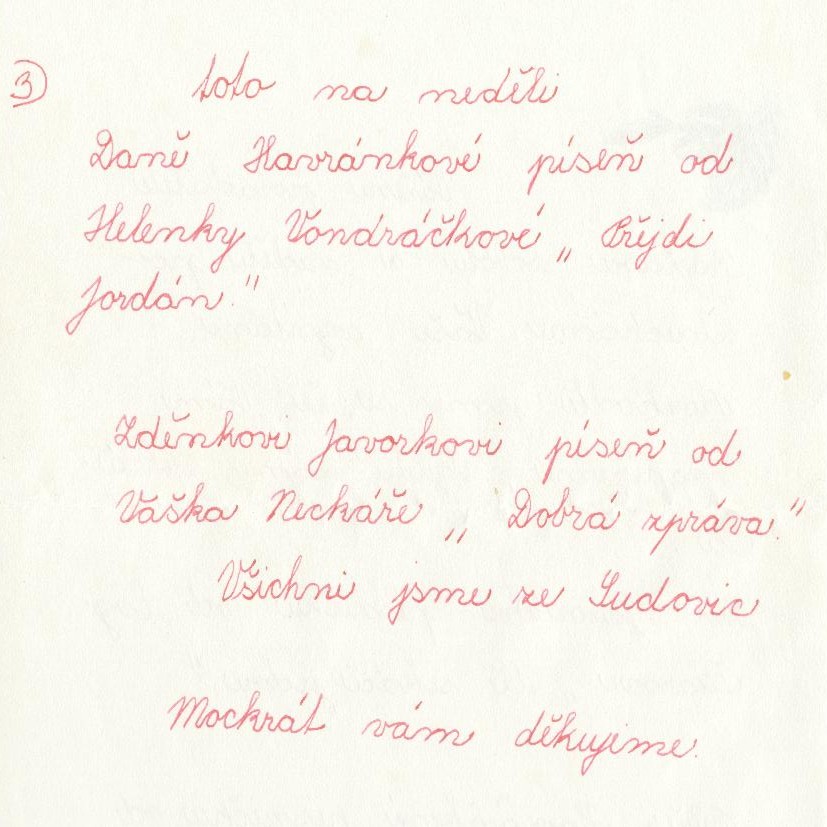 3
toto na neděli
Daně Havránkové píseň od
Helenky Vondráčkové „ Přejdi
Jordán."
Zděnkovi Javorkovi píseň od
Vaška Neckáře „ Dobrá zpráva."
Všichni jsme ze Sudovic
Mockrát vám děkujeme.